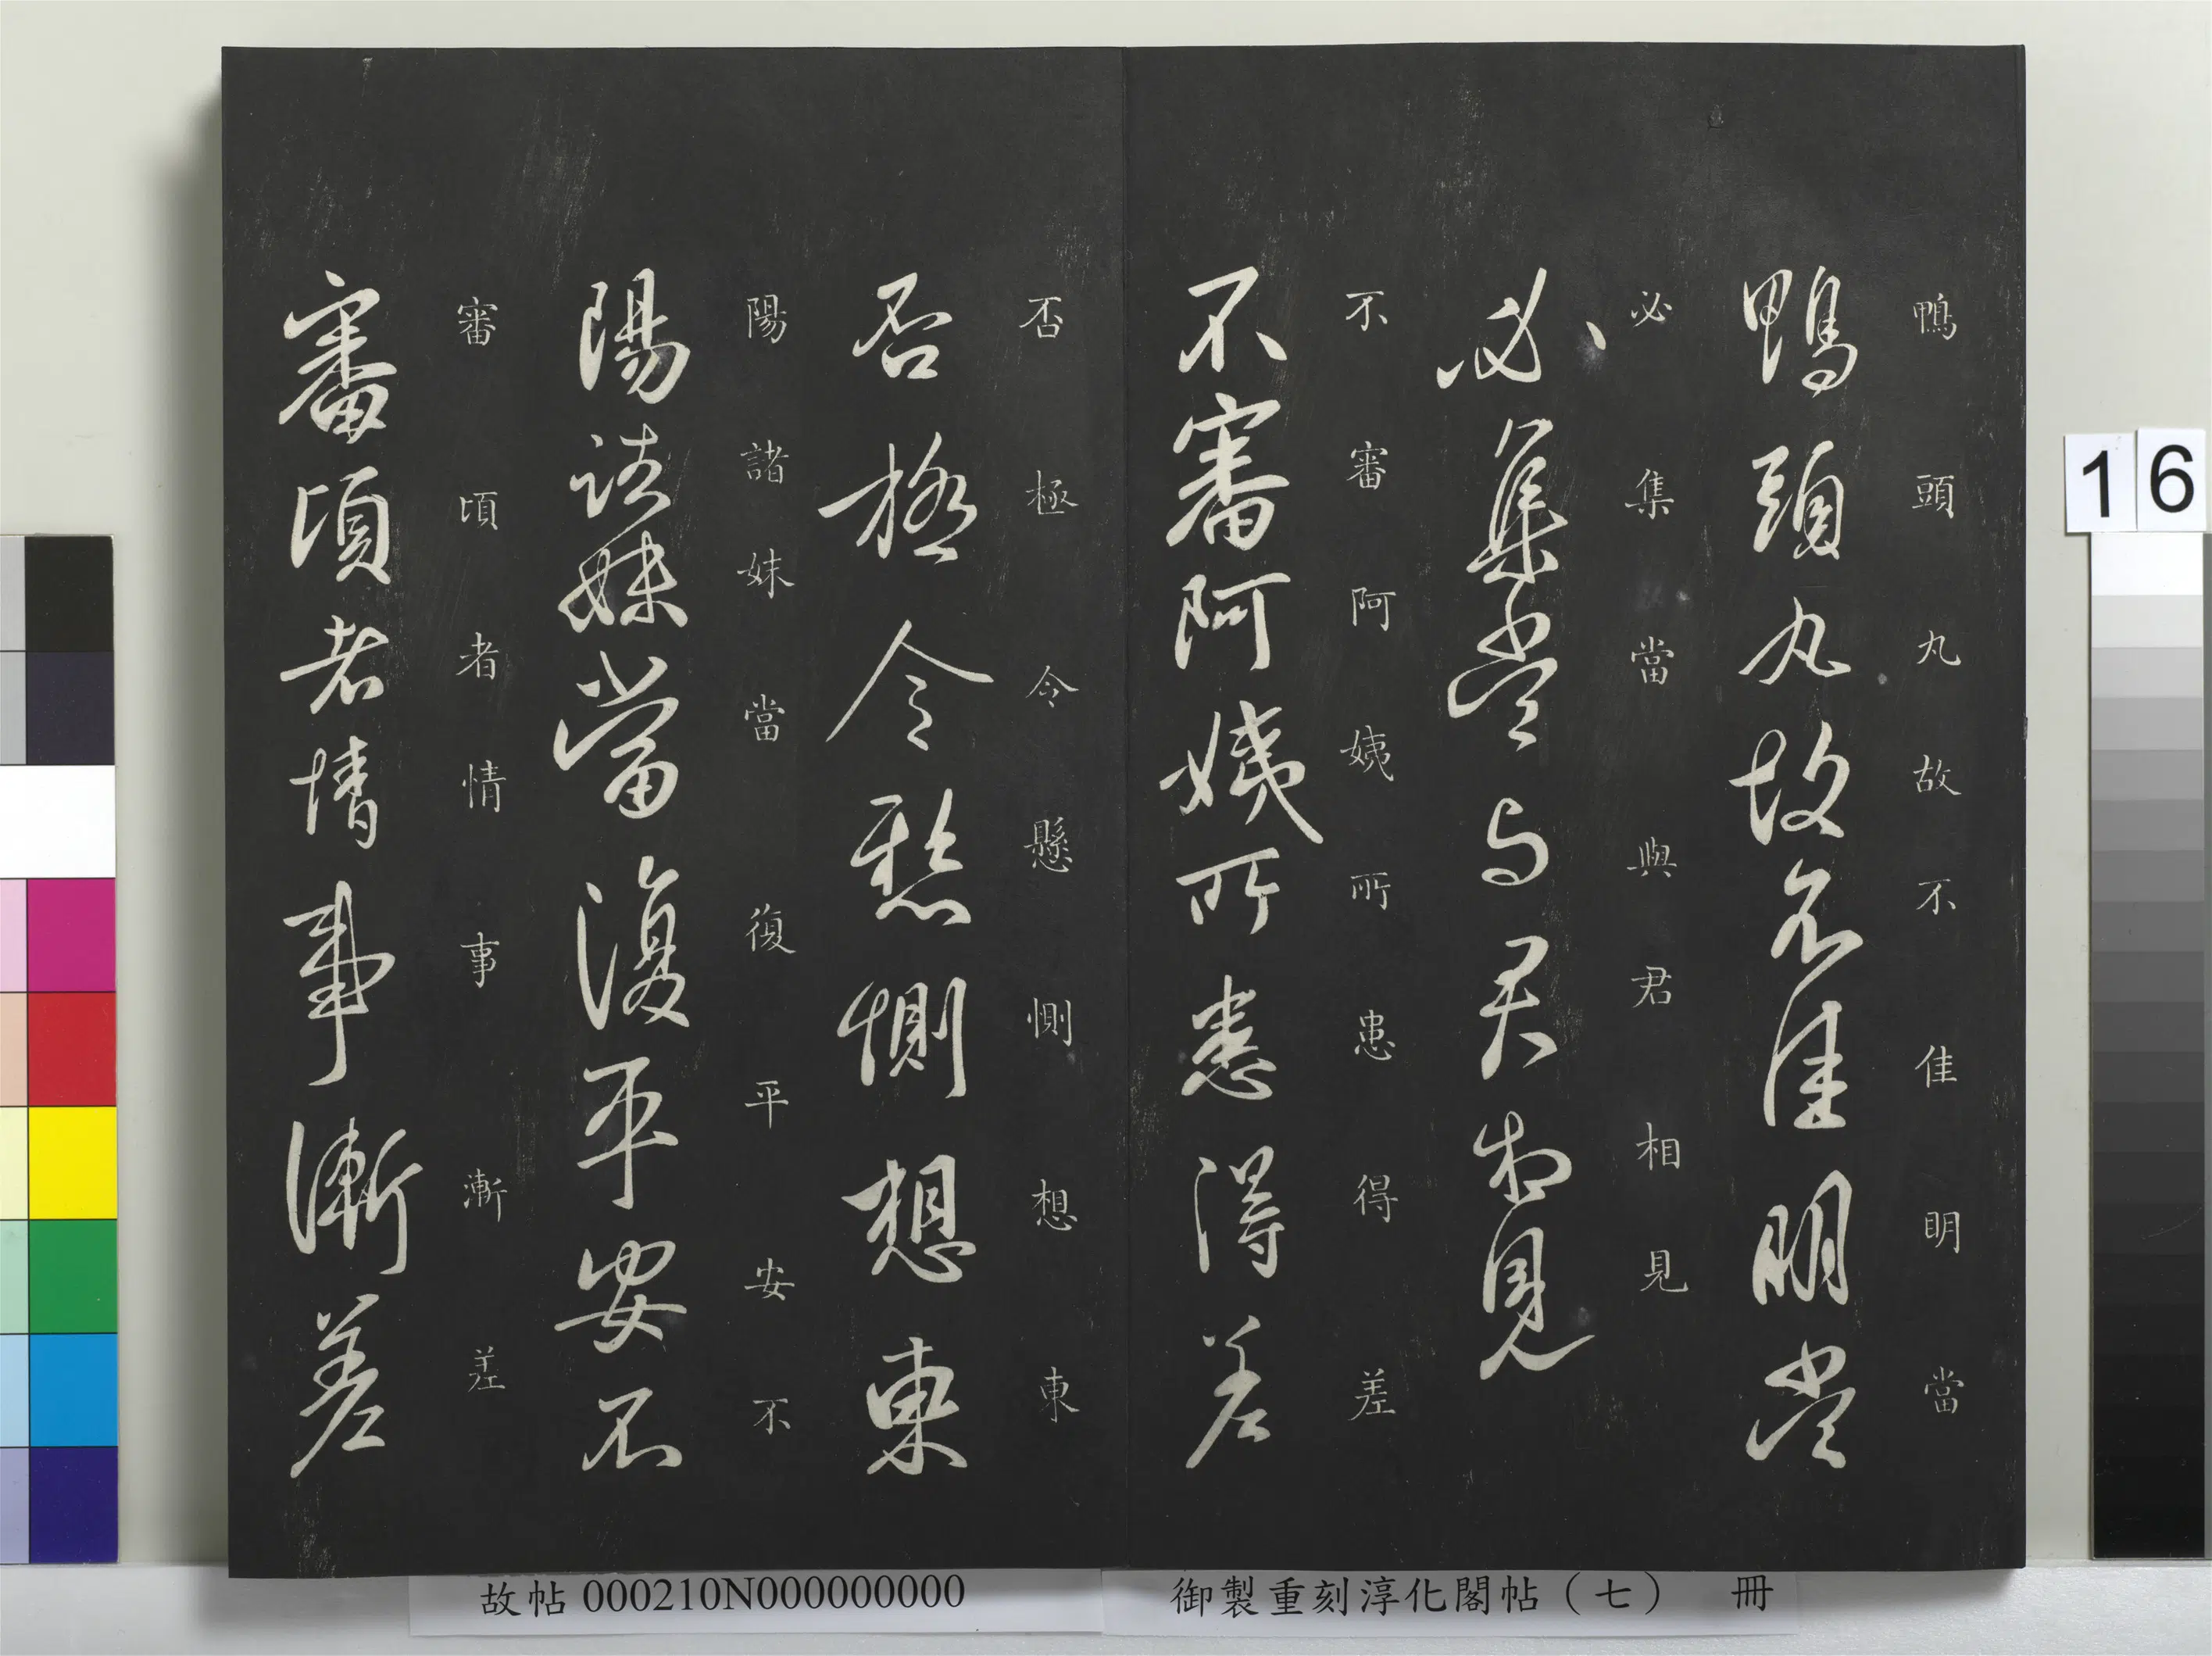 鴨頭丸故不佳明當
鴨頭丸故不佳明當
必集當與君相見
必集當与君相見
不審阿姨所患得差
不審阿姨所患得差
否極令懸惻想東
否極令懸惻想東
陽諸妹當復平安不
陽諸妹當復平安不
審頃者情事漸差
審頃者情事漸差
16
御製重刻淳化閣帖（七） 冊
故帖000210N000000000